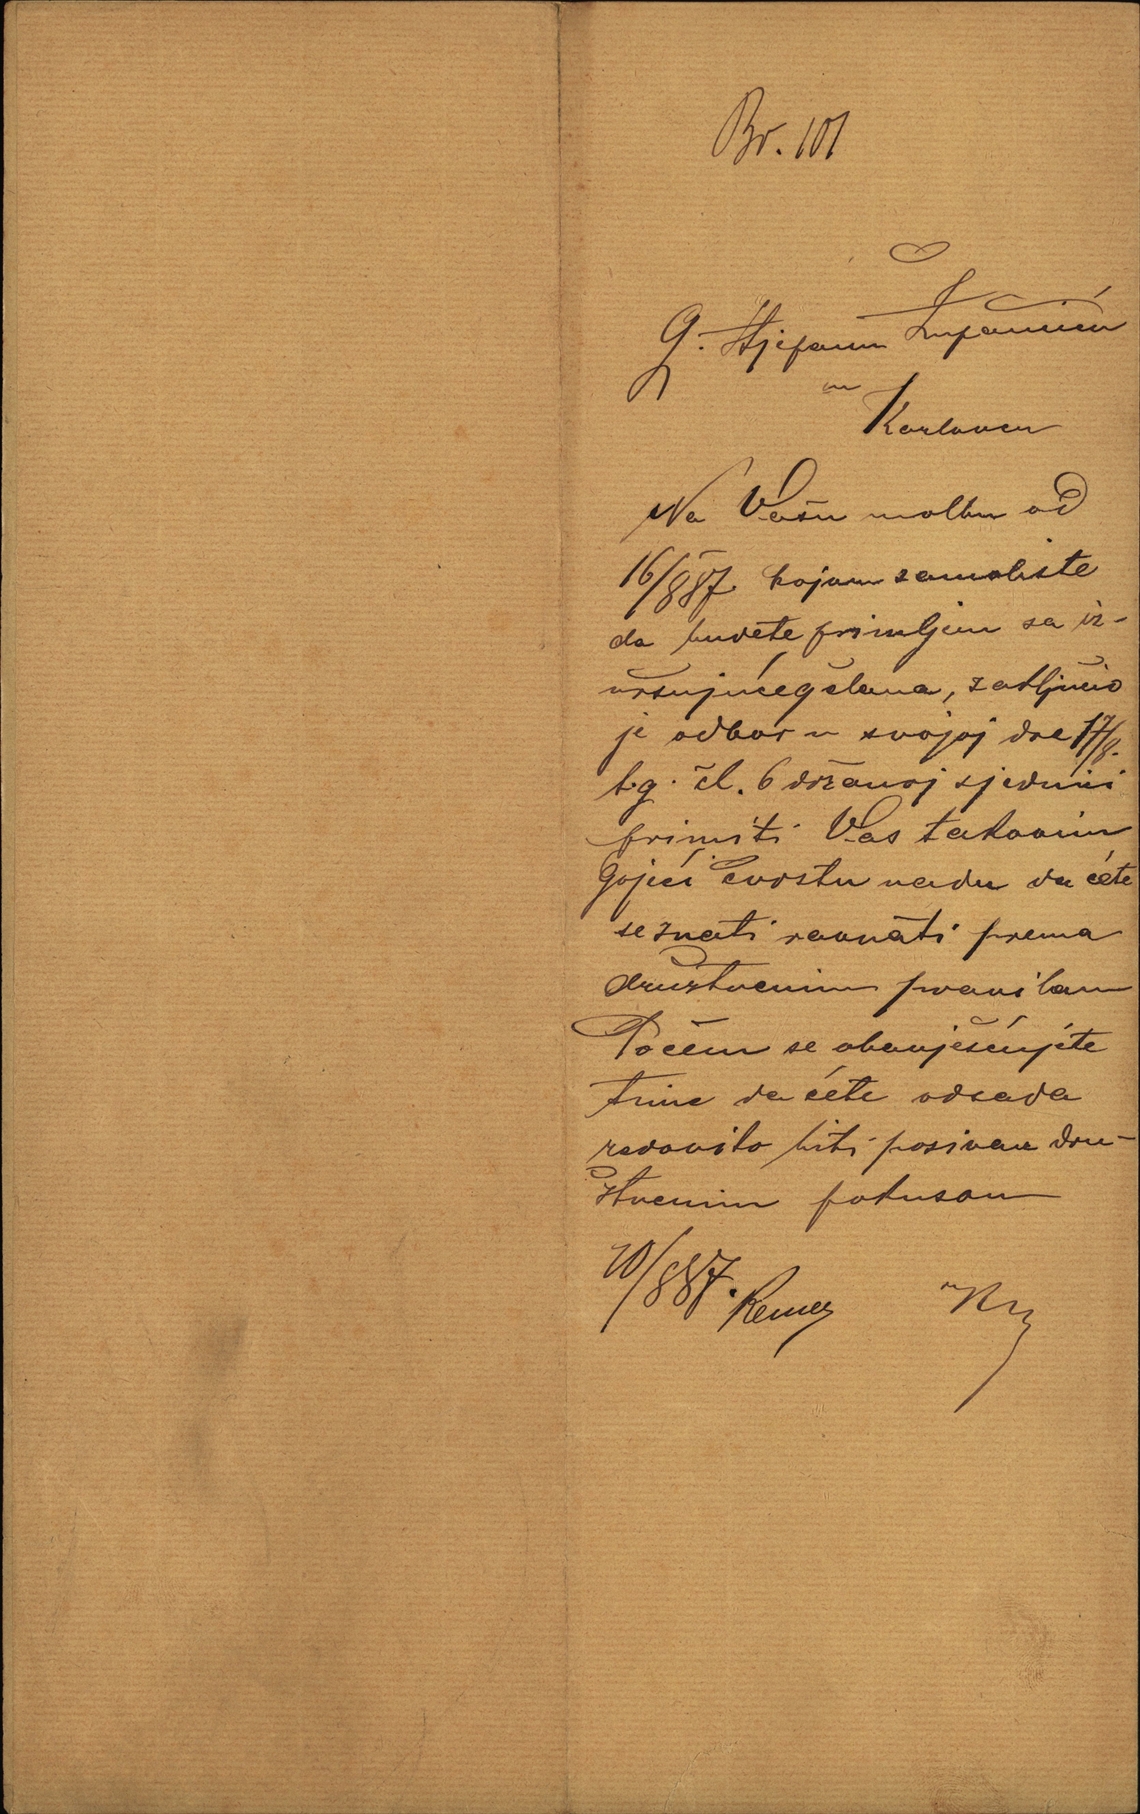 Br. 101
G. Stjepanu Županiću
u
Karlovcu
Na Vašu molbu od
16/8 887 kojom zamoliste
da budete primljen za iz-
vršujućeg člana, zaključio
je odbor u svojoj dne 17/8.
t.g. čl. 6 držanoj sjednici
primiti Vas takovim
gojeći čvrstu nadu da ćete
se znati ravnati prema
družtvenim pravilam
Počem se obavješćujete
time da ćete odsada
redovito biti pozivan dru-
žtvenim
20/8 887.